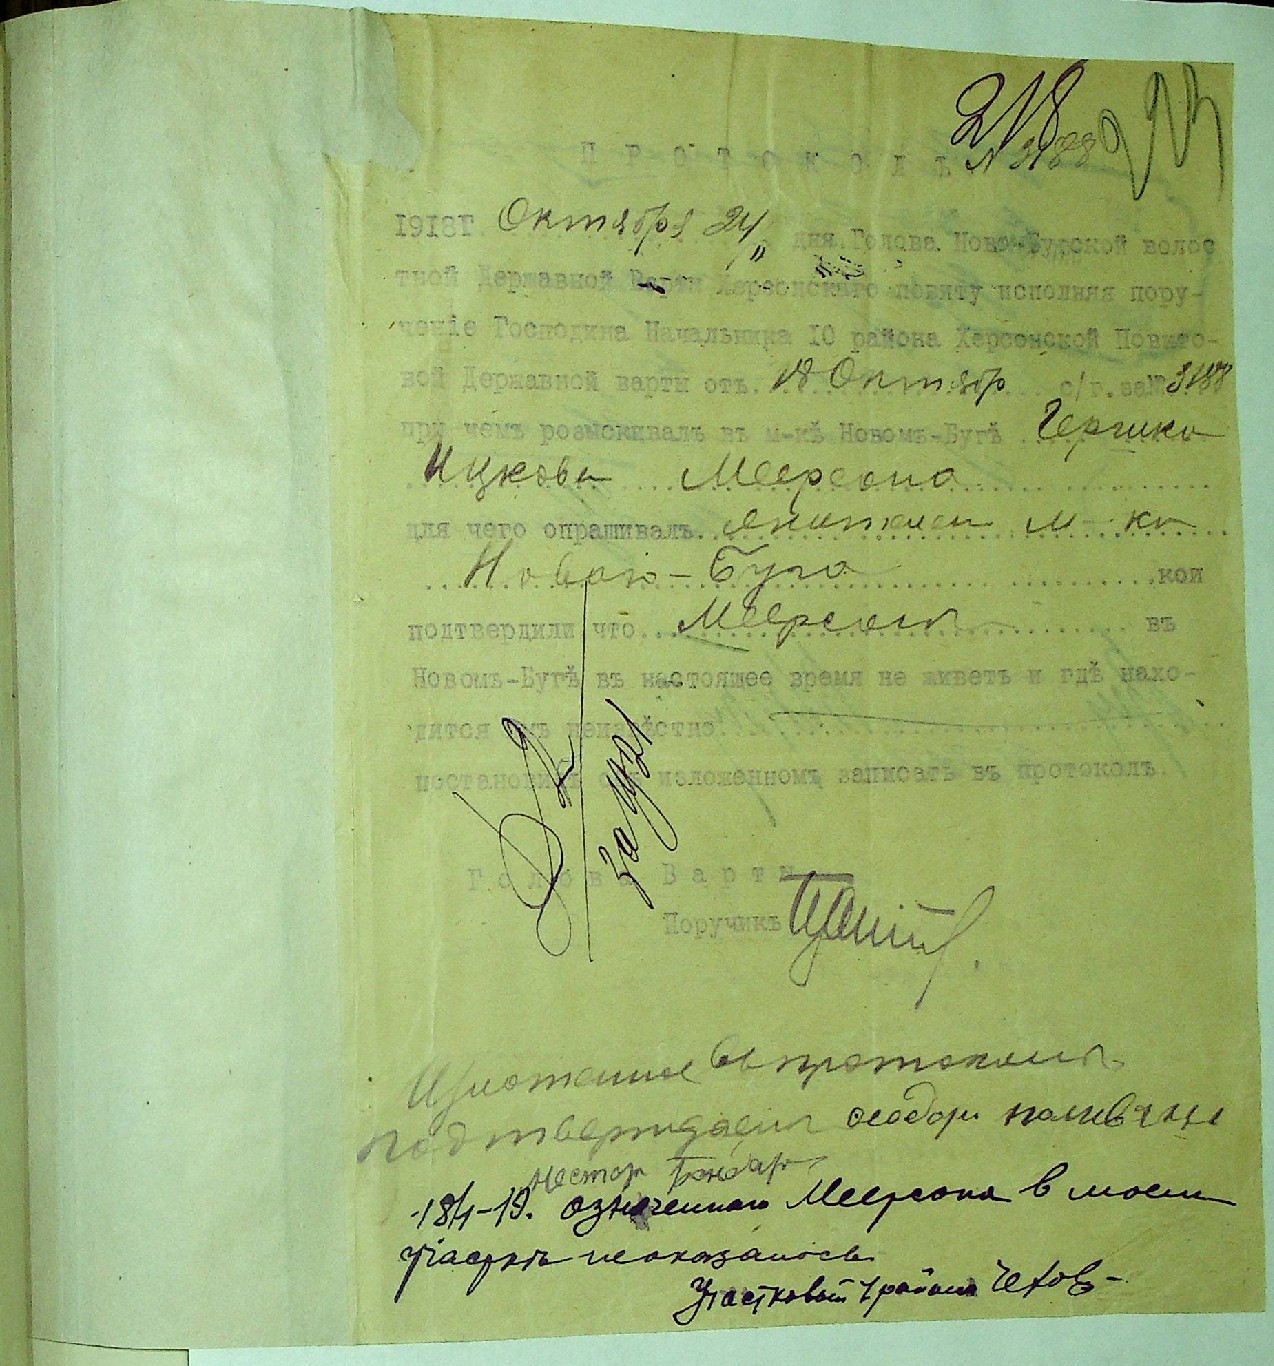 218
П Р О Т О К О Л Ъ № 3188
1918г. Октября 24 дня Голова Ново-Бугской волос
тной Державной Варти Херсонскаго повиту исполняя пору-
ченіе Господина Начальника 10 района Херсонской Повито-
вой Державной варти отъ 18 Октябр с/г. за № 3188
при чемъ розыскивалъ въ м-кѣ Новомъ-Бугѣ Гершко
Ицкова Меерсона
для чего опрашивалъ жителей м-ка
Новаго-Буга кои
подтвердили что Меерсонъ въ
Новомъ-Бугѣ въ настоящее время не живетъ и гдѣ нахо-
дится имъ неизвѣстно
постановилъ объ изложенномъ записать въ протоколъ.
Голова Варти
Поручикъ
Изложенное въ протоколѣ
подтверждаем
Нестор Бондар
18/I-19. означеннаго Меерсона в моем
участкѣ неоказалось
Участковый района Чехов